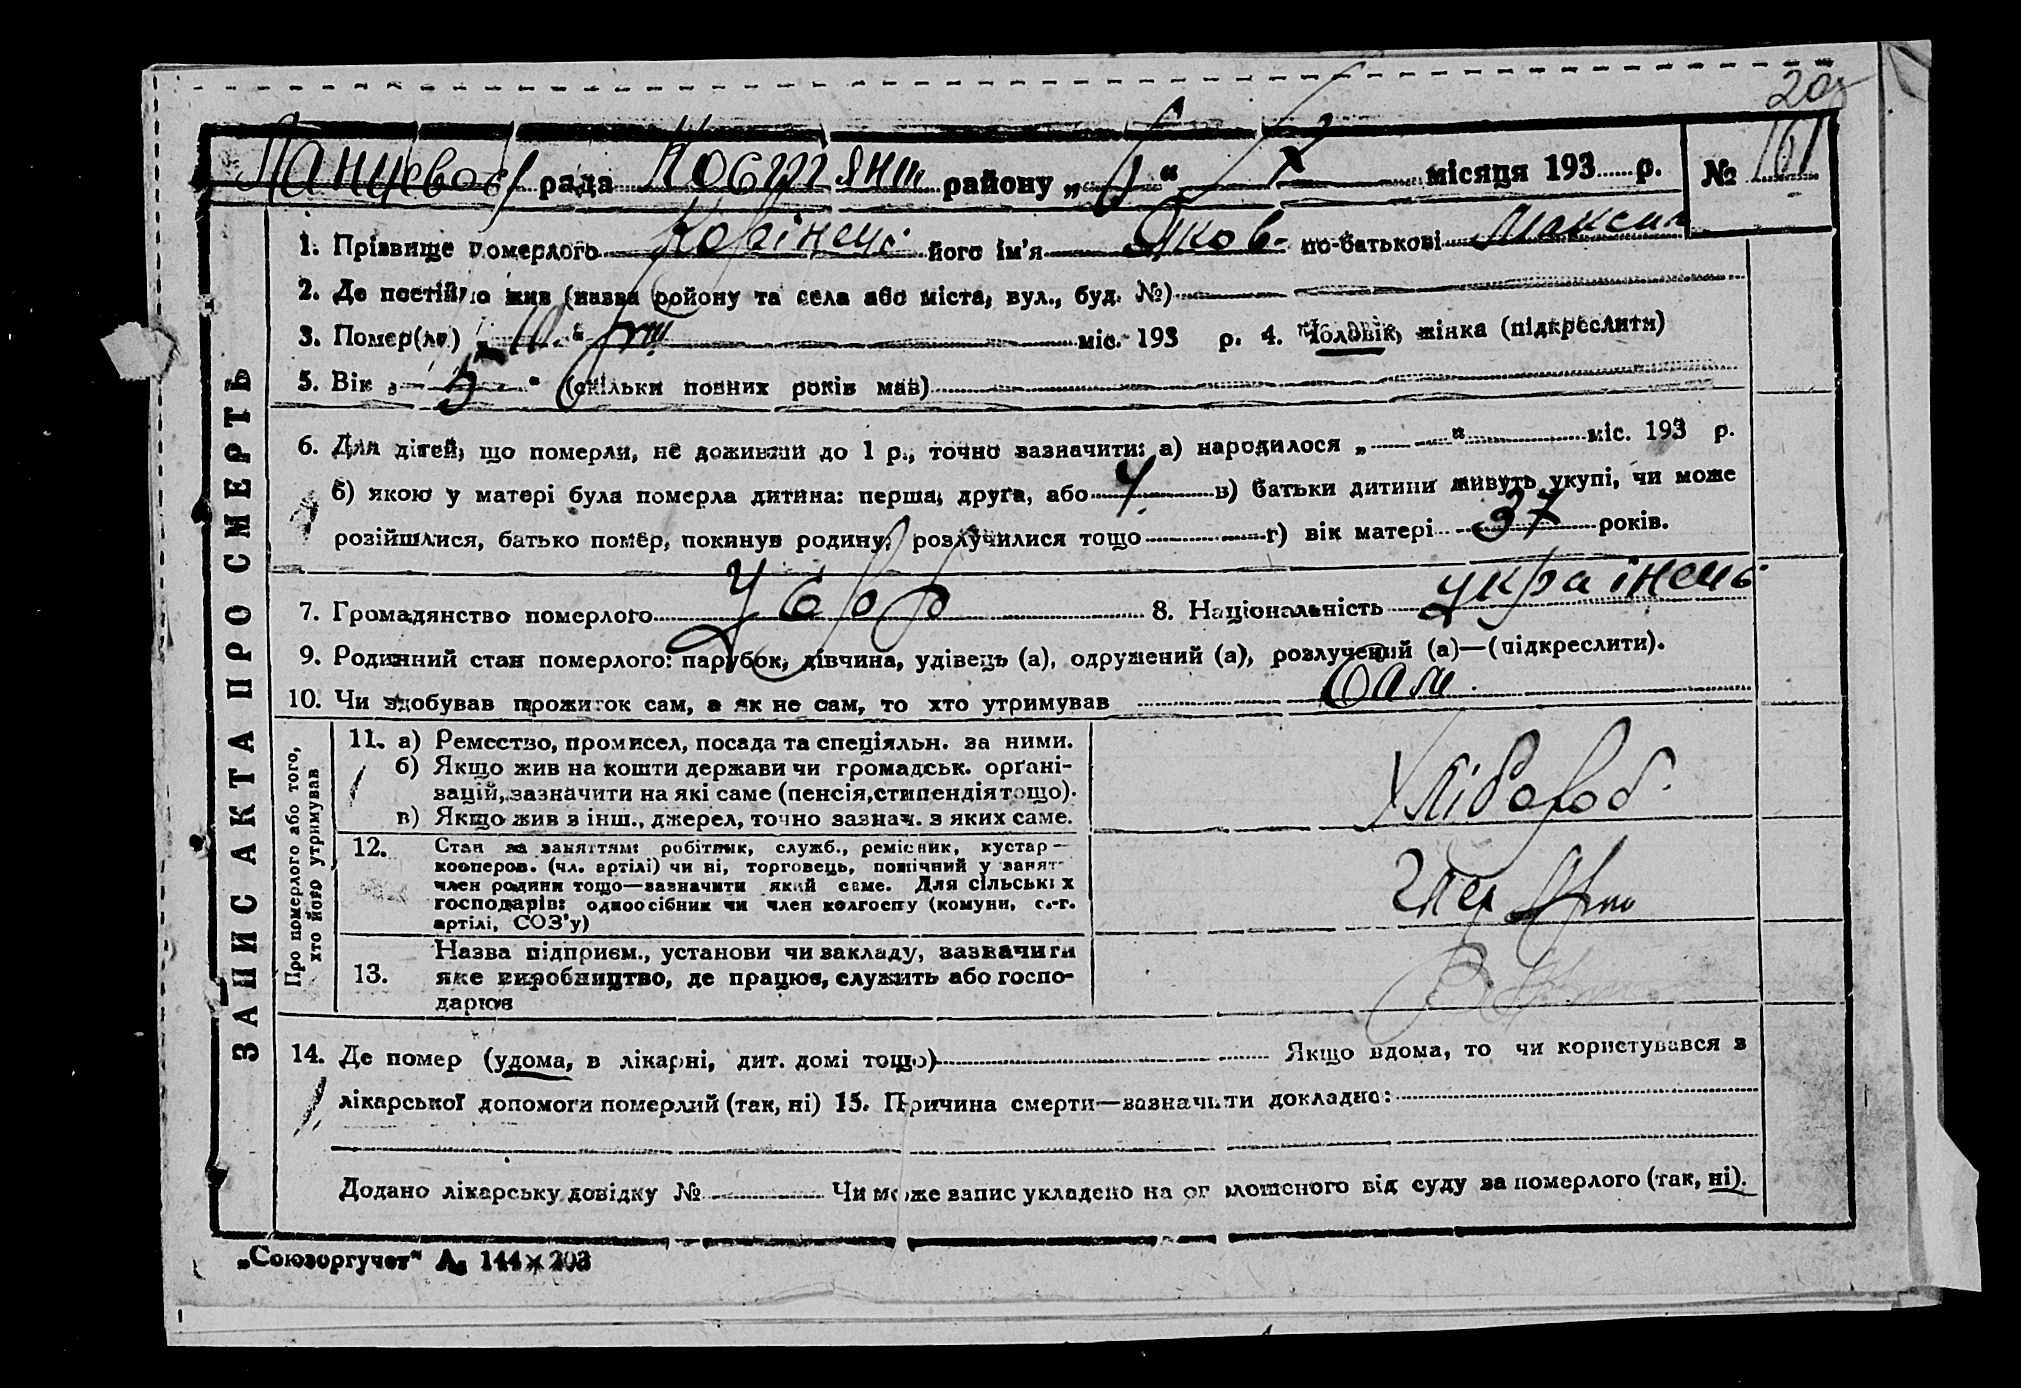 20
Панцевос рада Костянти району „6“ X місяця 193 р. № 161
1. Прізвище померлого Корінець його ім'я Яков по-батькові Максим
2. Де постійно жив (назва району та села або міста, вул., буд. №)
3. Помер(ла) „10“ VIII міс. 193 р. 4. Чоловік, жінка (підкреслити)
5. Вік „5“ (скільки повних років мав)
6. Для дітей, що померли, не доживши до 1 р., точно зазначити: а) народилося „ “ міс. 193 р.
б) якою у матері була померла дитина: перша, друга, або 4 в) батьки дитини живуть укупі, чи може
розійшлися, батько помер, покинув родину, розлучилися тощо г) вік матері 37 років.
7. Громадянство померлого УСРР 8. Національність українець
9. Родинний стан померлого: парубок, дівчина, удівець (а), одружений (а), розлучений (а)—(підкреслити).
10. Чи здобував прожиток сам, а як не сам, то хто утримував Сам
ЗАПИС АКТА ПРО СМЕРТЬ
Про померлого або того, хто його утримував
11. а) Ремество, промисел, посада та спеціяльн. за ними.
б) Якщо жив на кошти держави чи громадськ. орґані-
зацій, зазначити на які саме (пенсія, стипендія тощо).
в) Якщо жив з інш., джерел, точно зазнач. з яких саме.
Хлібороб
12. Стан за заняттям: робітник, служб., ремісник, кустар—
кооперов. (чл. артілі) чи ні, торговець, помічний у занят-
член родини тощо—зазначити який саме. Для сільських
господарів: одноосібник чи член колгоспу (комуни, с.-г.
артілі, СОЗ'у)
Член Арт
13. Назва підприєм., установи чи закладу, зазначити
яке виробництво, де працює, служить або госпо-
дарює
14. Де помер (удома, в лікарні, дит. домі тощо) Якщо вдома, то чи користувався з
лікарської допомоги померлий (так, ні) 15. Причина смерти—зазначити докладно:
Додано лікарську довідку № Чи може запис укладено на оголошеного від суду за померлого (так, ні).
„Союзоргучет“ А₅ 144×203